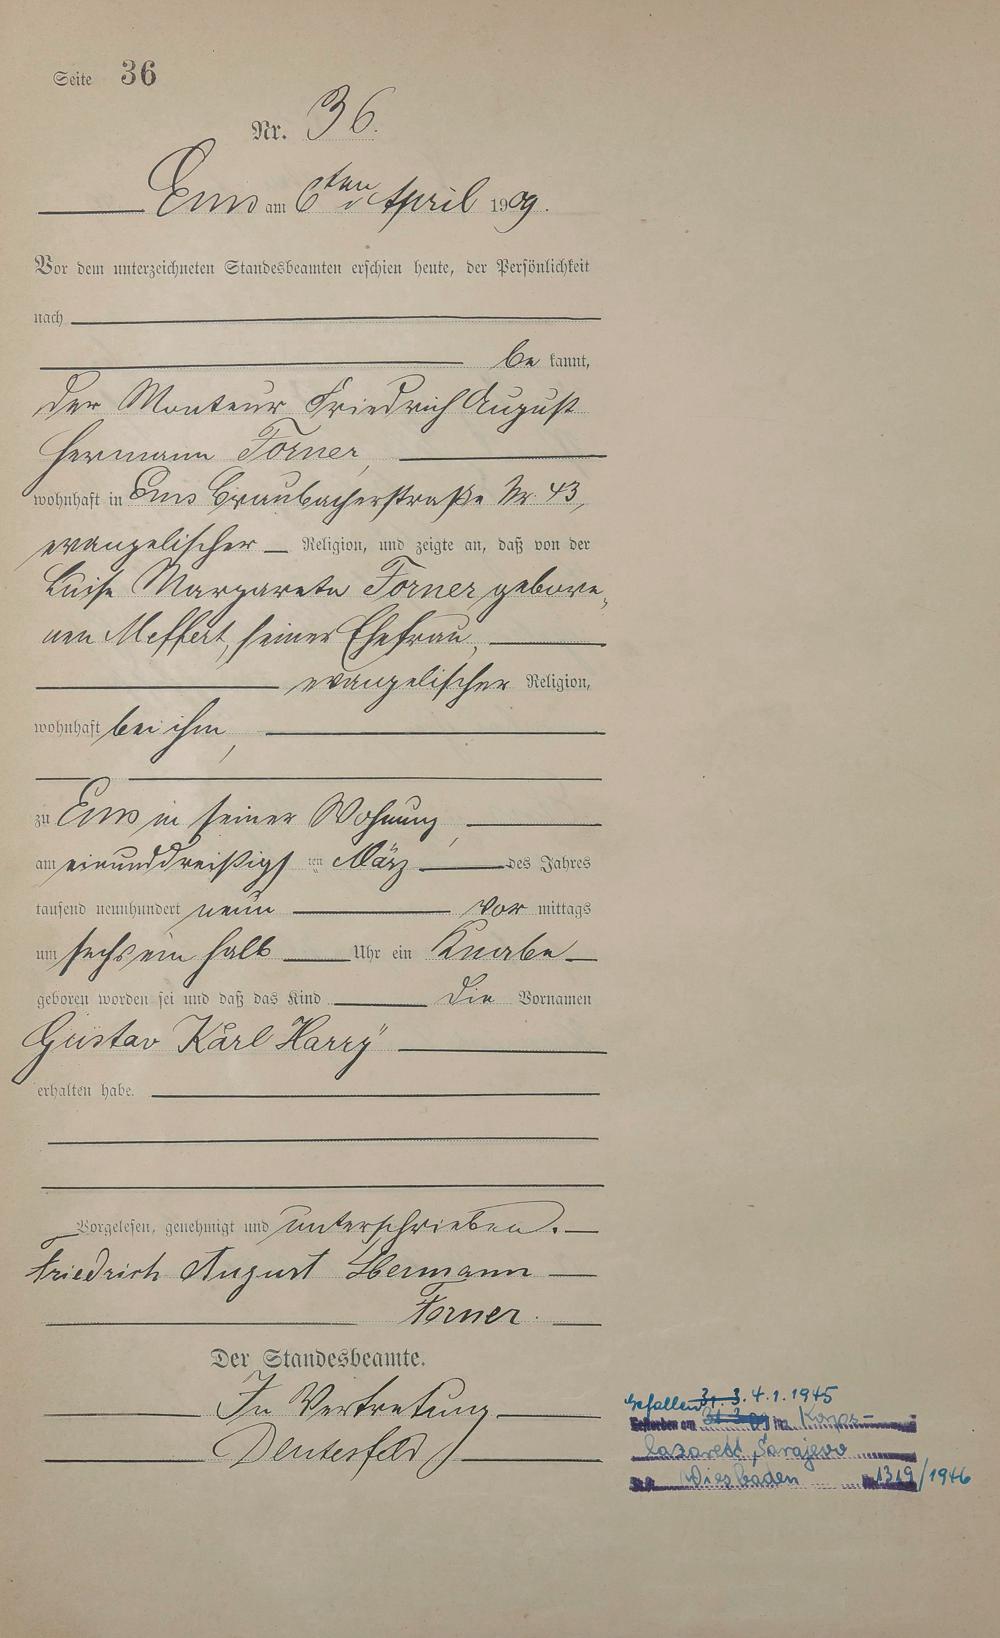 Seite 36
Nr. 36.
Ems am 6ten April 1909.
Vor dem unterzeichneten Standesbeamten erschien heute, der Persönlichkeit
nach
be kannt,
der Monteur Friedrich August
Hermann Forner,
wohnhaft in Ems Braubacherstraße Nr. 43,
evangelischer Religion, und zeigte an, daß von der
Luise Margareta Forner gebore-
nen Meffert, seiner Ehefrau,
evangelischer Religion,
wohnhaft bei ihm,
zu Ems in seiner Wohnung,
am einunddreißigsten März des Jahres
tausend neunhundert neun vor mittags
um sechs ein halb Uhr ein Knabe
geboren worden sei und daß das Kind die Vornamen
Gustav Karl "Harry"
erhalten habe.
Vorgelesen, genehmigt und unterschrieben.
Friedrich August Hermann
Forner.
Der Standesbeamte.
In Vertretung
Gefallen 31. 3. 4.1.1945
Gestorben am 31.3.09 in Korps-
lazarett Sarajevo
St.A. Wiesbaden Nr. 1319/1946